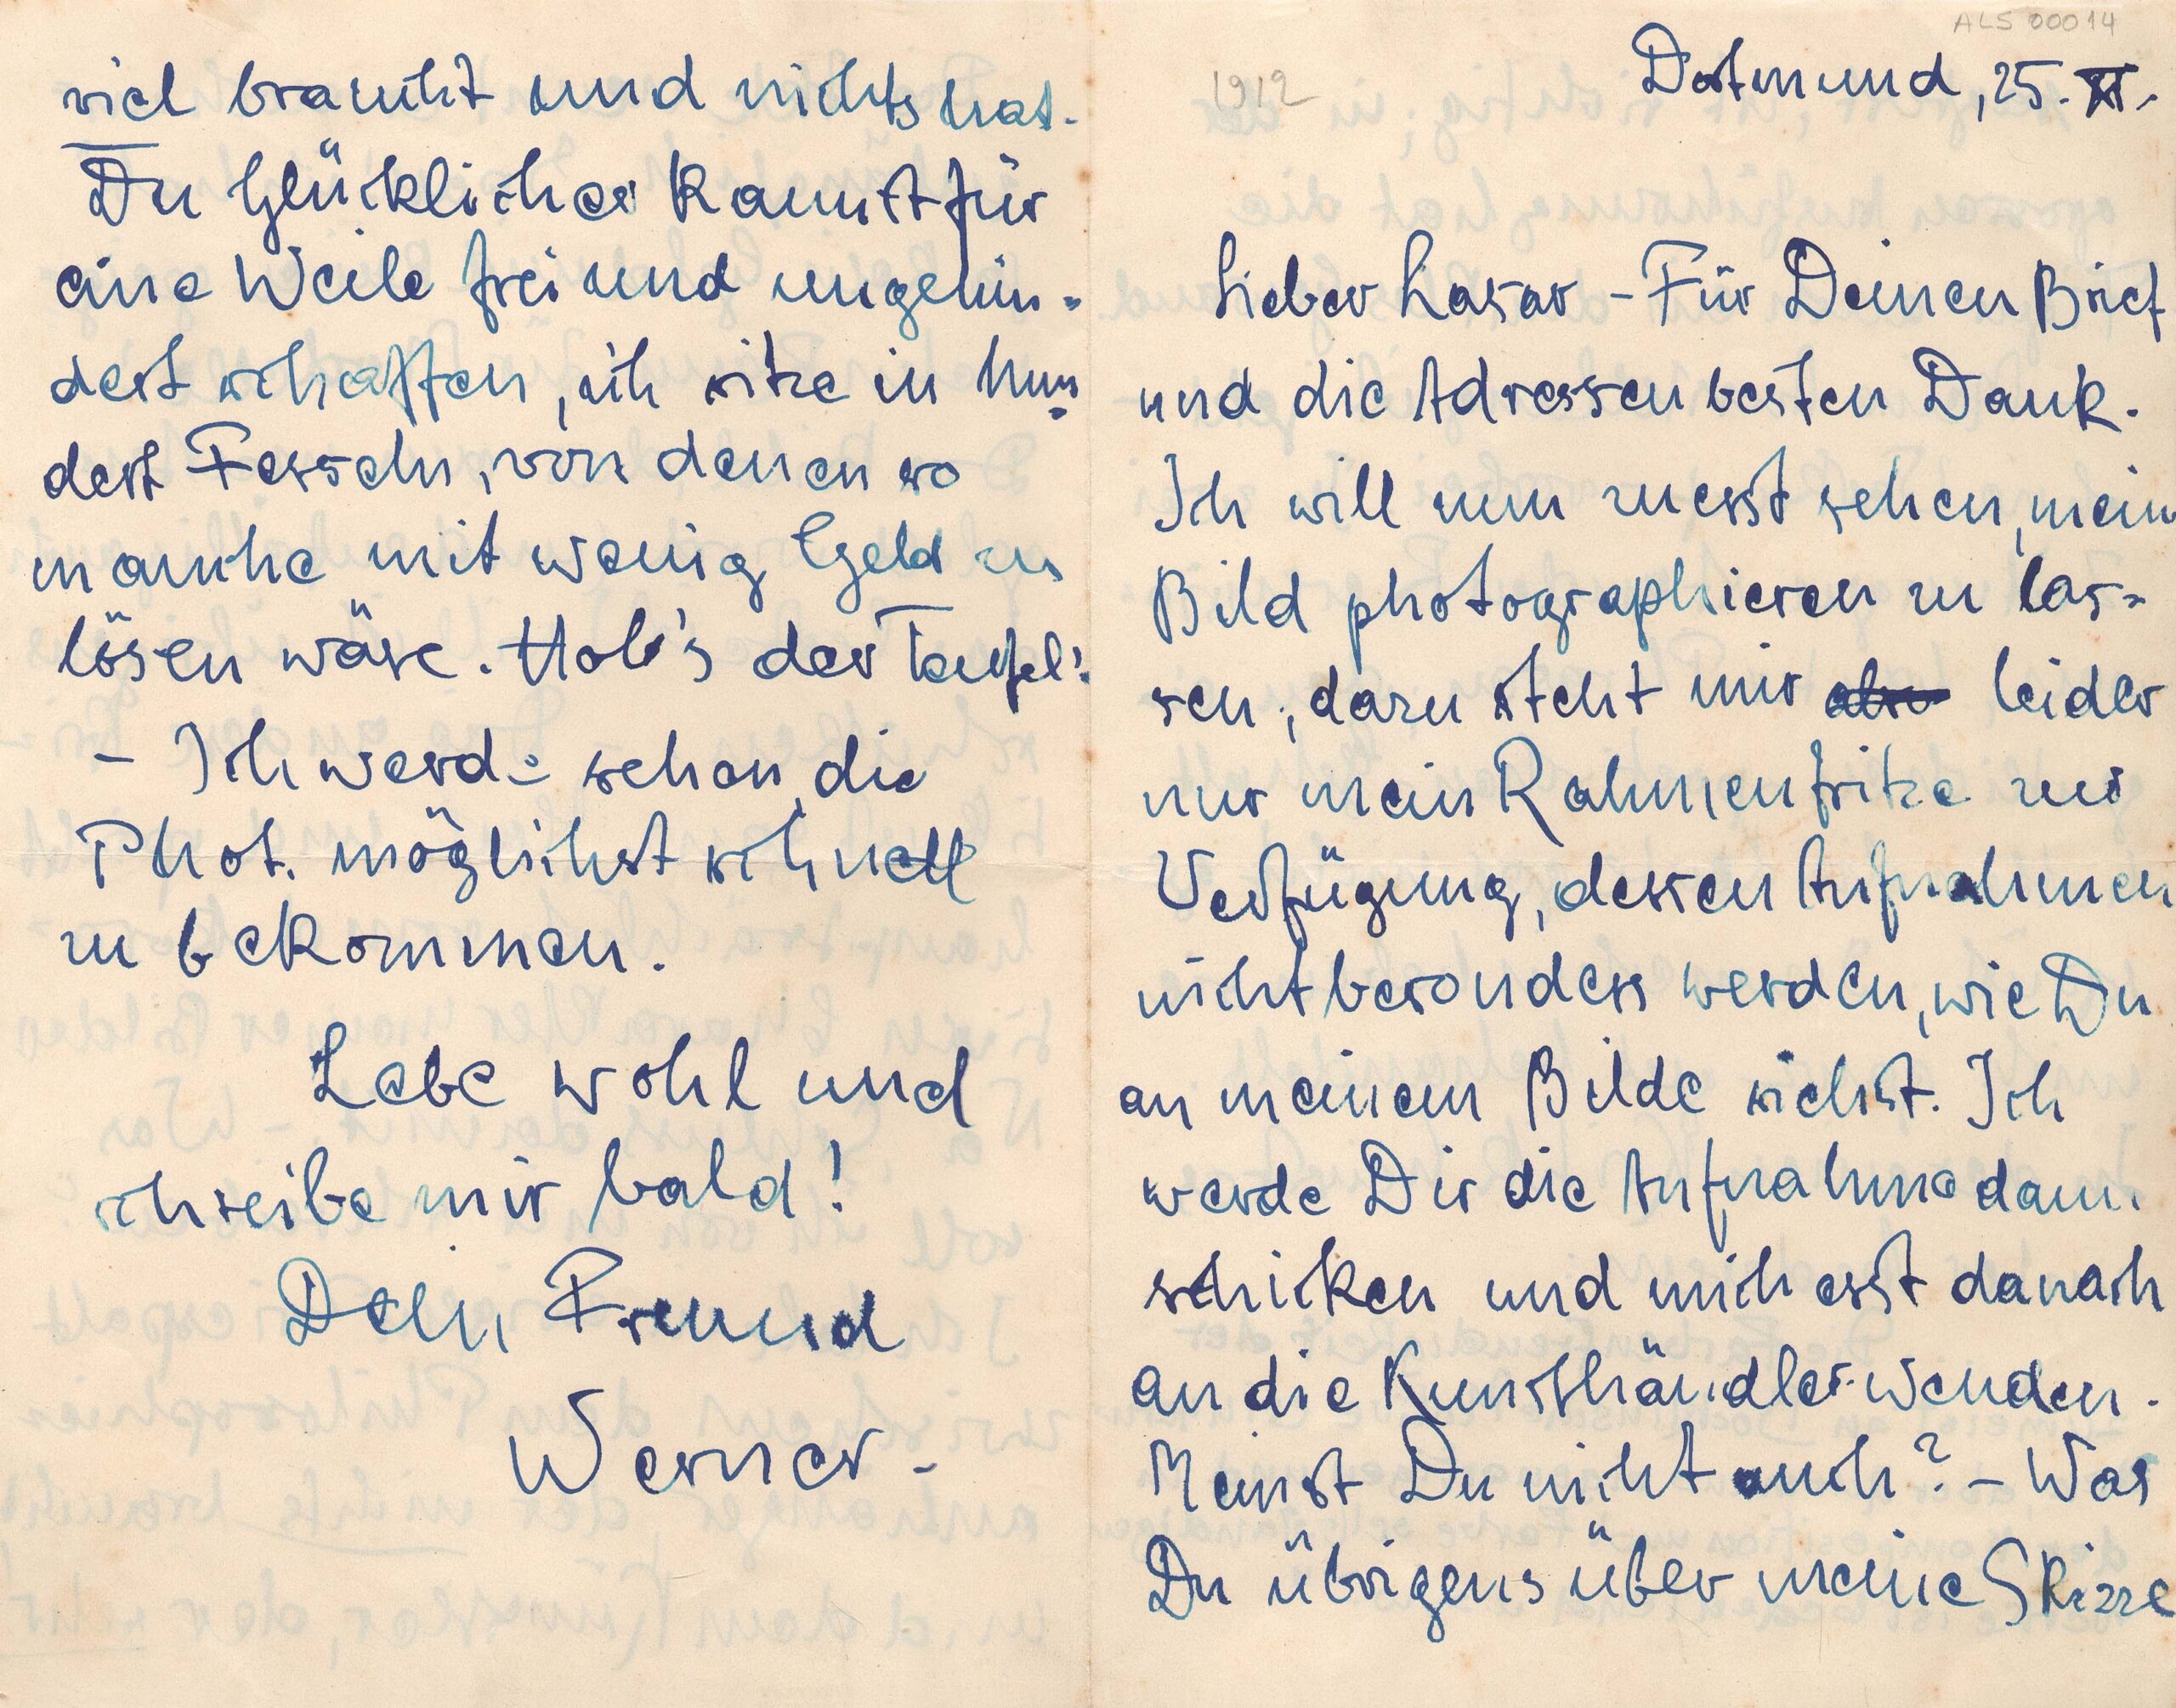 ALS 00014
1912
Dortmund, 25. XI.
Lieber Lasar - Für Deinen Brief
und die Adressen besten Dank.
Ich will nun zuerst sehen, mein
Bild photographieren zu las-
sen, dazu steht mir aber leider
nur mein Rahmenfritze zur
Verfügung, dessen Aufnahmen
nicht besonders werden, wie Du
an meinem Bilde siehst. Ich
werde Dir die Aufnahme dann
schicken und mich erst danach
an die Kunsthändler wenden.
Meinst Du nicht auch? - Was
Du übrigens über meine Skizze
viel braucht und nichts hat.
Du Glücklicher kannst für
eine Weile frei und ungehin-
dert schaffen, ich sitze in hun-
dert Fesseln, von denen so
manche mit wenig Geld zu
lösen wäre. Hol's der Teufel!
- Ich werde sehen, die
Phot. möglichst schnell
zu bekommen.
Lebe wohl und
schreibe mir bald!
Dein Freund
Werner-